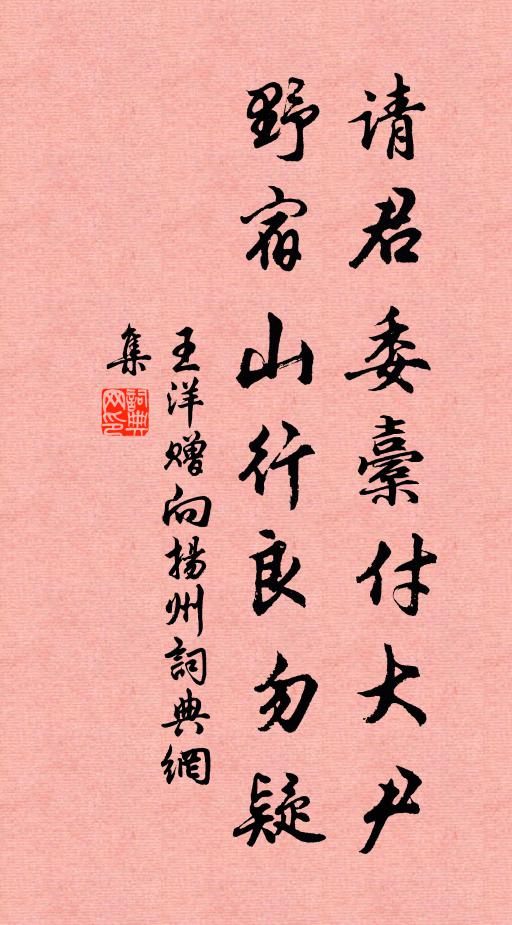 请君委橐付大尹
野宿山行良勿疑
王洋赠向揚州詞典網
集
詞典网印